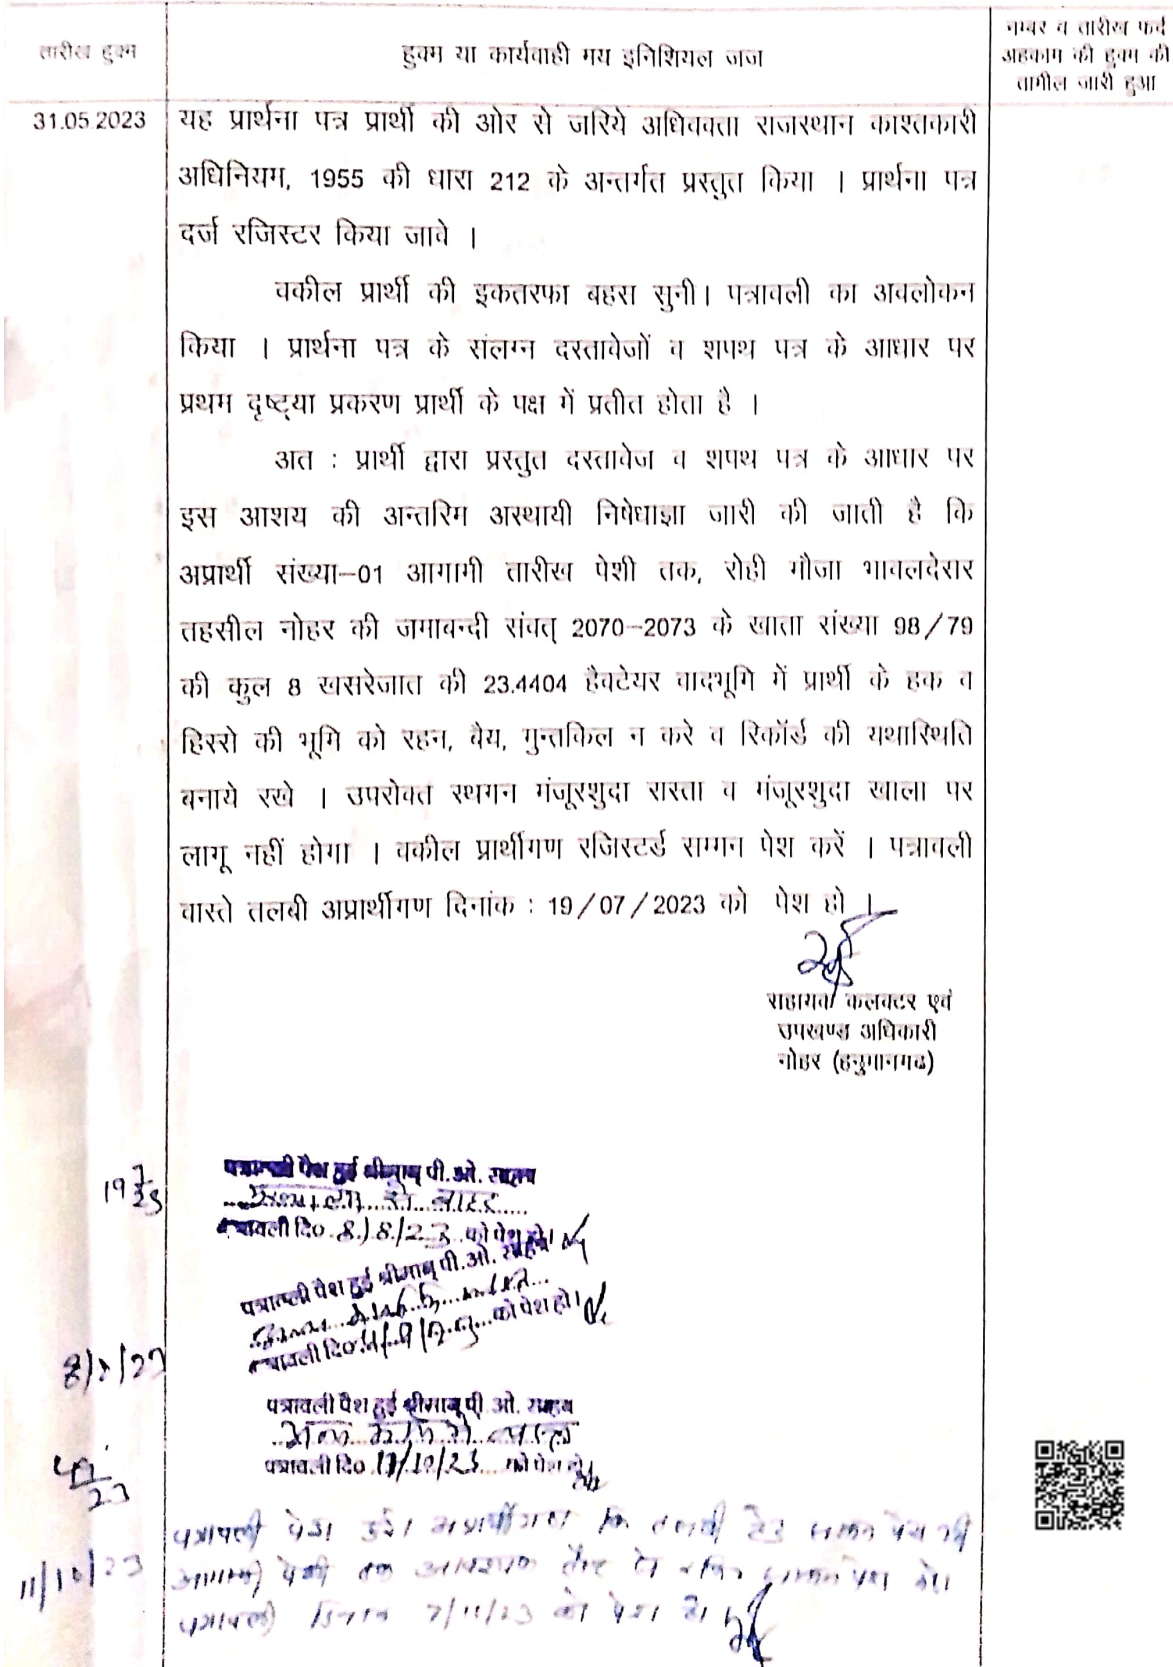 तारीख हुक्म
हुक्म या कार्यवाही मय इनिशियल जज
नम्बर व तारीख फर्द
अहकाम की हुक्म की
तामील जारी हुआ
31.05.2023
यह प्रार्थना पत्र प्रार्थी की ओर से जरिये अधिवक्ता राजस्थान काश्तकारी
अधिनियम, 1955 की धारा 212 के अन्तर्गत प्रस्तुत किया । प्रार्थना पत्र
दर्ज रजिस्टर किया जावे ।
वकील प्रार्थी की इकतरफा बहस सुनी। पत्रावली का अवलोकन
किया । प्रार्थना पत्र के संलग्न दस्तावेजों व शपथ पत्र के आधार पर
प्रथम दृष्ट्या प्रकरण प्रार्थी के पक्ष में प्रतीत होता है ।
अत : प्रार्थी द्वारा प्रस्तुत दस्तावेज व शपथ पत्र के आधार पर
इस आशय की अन्तरिम अस्थायी निषेधाज्ञा जारी की जाती है कि
अप्रार्थी संख्या–01 आगामी तारीख पेशी तक, रोही मौजा भावलदेसर
तहसील नोहर की जमाबन्दी संवत् 2070–2073 के खाता संख्या 98/79
की कुल 8 खसरेजात की 23.4404 हैक्टेयर वादभूमि में प्रार्थी के हक व
हिस्से की भूमि को रहन, बैय, मुन्तकिल न करे व रिकॉर्ड की यथास्थिति
बनाये रखे । उपरोक्त स्थगन मंजूरशुदा रास्ता व मंजूरशुदा खाला पर
लागू नहीं होगा । वकील प्रार्थीगण रजिस्टर्ड सम्मन पेश करें । पत्रावली
वास्ते तलबी अप्रार्थीगण दिनांक : 19/07/2023 को पेश हो ।
सहायक कलक्टर एवं
उपखण्ड अधिकारी
नोहर (हनुमानगढ)
19/7/23
पत्रावली पेश हुई श्रीमान् पी.ओ. साहब
पत्रावली दि० 8/8/23 को पेश हो।
8/8/23
पत्रावली पेश हुई श्रीमान् पी.ओ. साहब
पत्रावली दि० को पेश हो।
पत्रावली पेश हुई श्रीमान् पी. ओ. साहब
पत्रावली दि० 11/10/23 को पेश हो
11/10/23
पत्रावली पेश हुई। अप्रार्थीगण
पत्रावली दिनांक 7/11/23 को पेश हो।